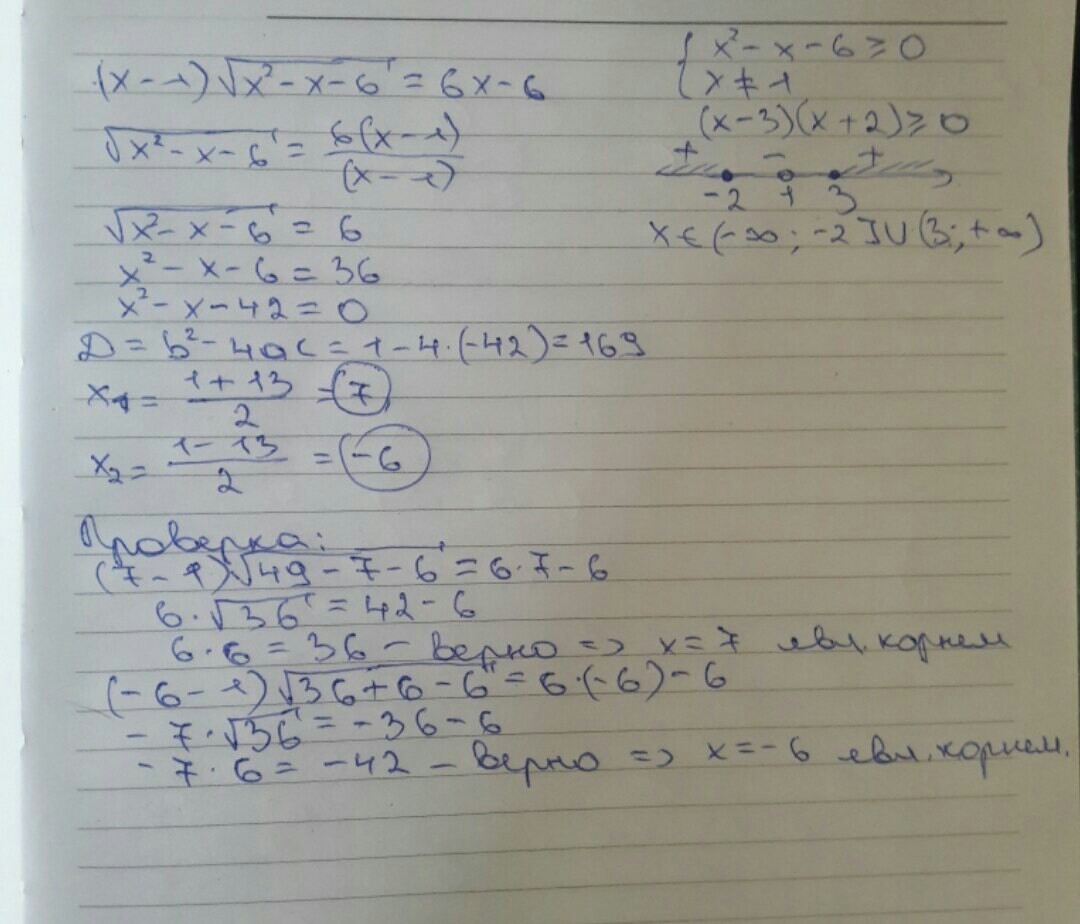 (x-1)√(x²-x-6) = 6x-6
√(x²-x-6) = 6(x-1)/(x-1)
√(x²-x-6) = 6
x²-x-6 = 36
x²-x-42 = 0
D = b²-4ac = 1-4·(-42) = 169
x₁ = (1+13)/2 = 7
x₂ = (1-13)/2 = -6
{ x²-x-6 ≥ 0
x ≠ 1
(x-3)(x+2) ≥ 0
+ - +
-2 1 3
x ∈ (-∞; -2] ∪ (3; +∞)
Проверка:
(7-1)√(49-7-6) = 6·7-6
6·√36 = 42-6
6·6 = 36 - верно => x = 7 явл. корнем
(-6-1)√(36+6-6) = 6·(-6)-6
-7·√36 = -36-6
-7·6 = -42 - верно => x = -6 явл. корнем.